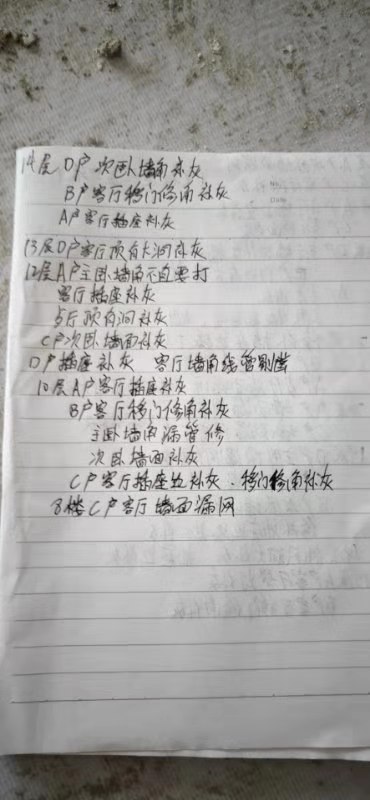 14层D户次卧墙角补灰
No.
Date
B户客厅移门修角补灰
A户客厅插座补灰
13层D户客厅顶有大洞补灰
12层A户主卧墙角不直要打
客厅插座补灰
歺厅顶有洞补灰
C户次卧墙面补灰
D户插座补灰 客厅墙角线管剔凿
10层A户客厅插座补灰
B户客厅移门修角补灰
主卧墙角漏管修
次卧墙面补灰
C户客厅插座边补灰.移门修角补灰
8楼C户客厅墙面漏网